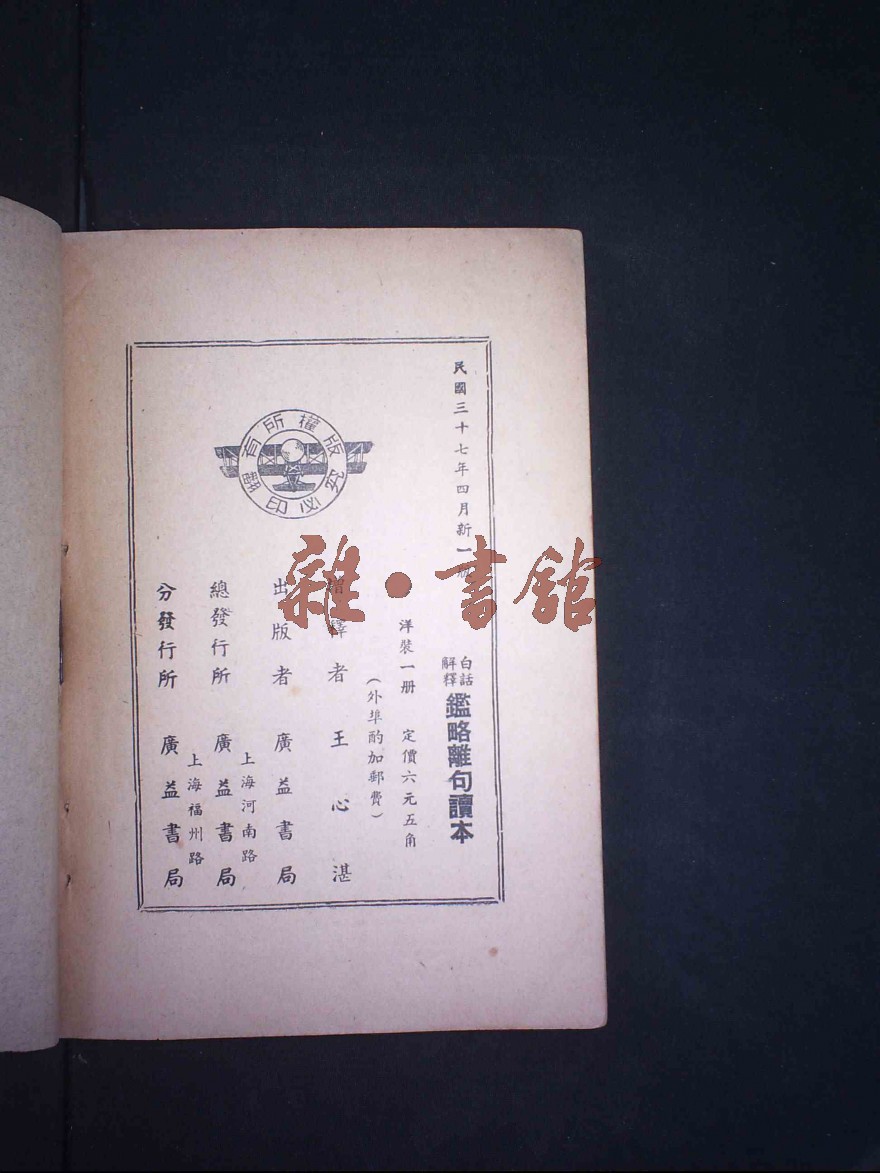 民國三十七年四月新一版
白話
解釋
鑑略離句讀本
洋裝一冊 定價六元五角
(外埠酌加郵費)
增釋者 王心湛
出版者 廣益書局
上海河南路
總發行所 廣益書局
上海福州路
分發行所 廣益書局
版權所有
翻印必究
雜·書館